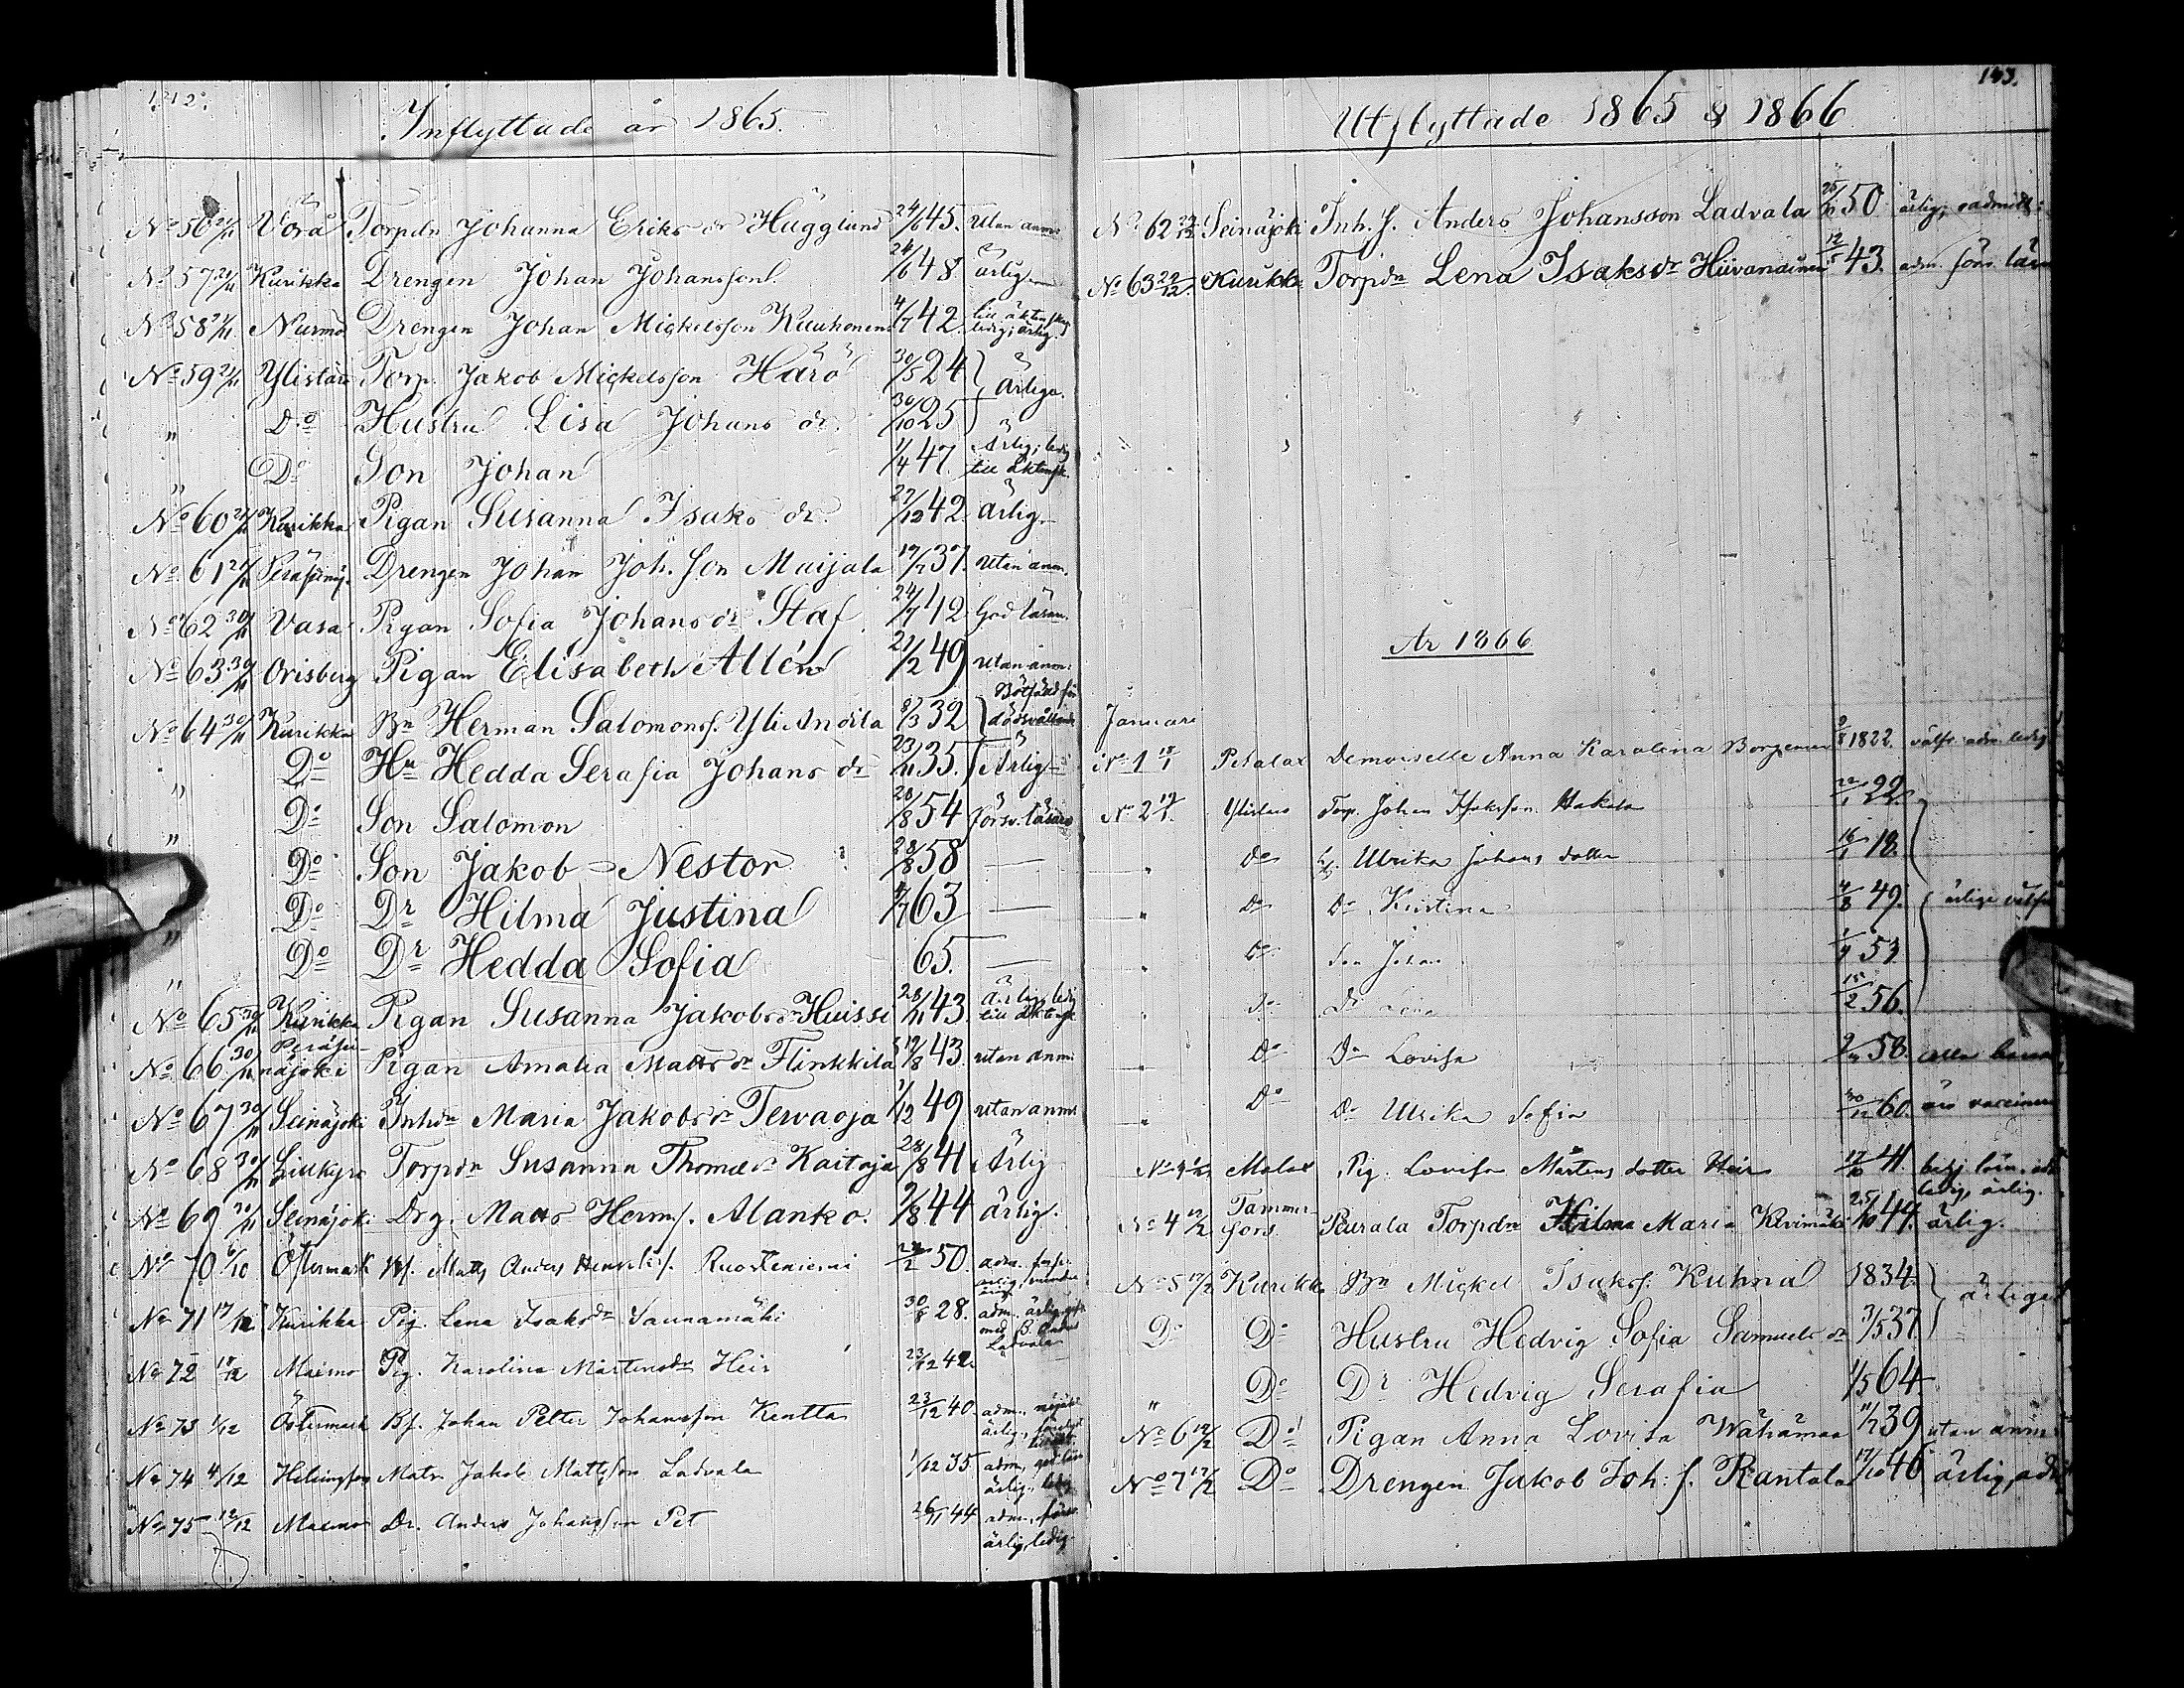 142.
Inflyttade år 1865.
No 56 21/11 Vörå Torpdn Johanna Eriks dr Hägglund 24/6 45. Utan anm:
No 57 21/11 Kurikka Drengen Johan Johansson 24/6 48. ärlig
No 58 21/11 Nurmo Drengen Johan Mickelsson Kuuhonen 4/7 42. till äktensk. ledig, ärlig.
No 59 21/11 Ylistaro Torp. Jakob Mickelsson Härö 30/5 24 } ärliga.
" Do Hustru Lisa Johans dr. 30/10 25 }
" Do Son Johan 1/4 47. Ärlig; ledig till äktensk.
No 60 21/11 Kurikka Pigan Susanna Isaks dr. 27/12 42. ärlig
No 61 21/11 Peräseinäj. Drengen Johan Joh. son Maijala 17/7 37. utan anm.
No 62 30/11 Vasa Pigan Sofia Johans dr Staf 24/7 42 God läsen.
No 63 30/11 Orisberg Pigan Elisabeth Allén 21/2 49 utan anm:
No 64 30/11 Kurikka Bn Herman Salomonss. Yli Andila 8/3 32 } Bötfäld för dödsvållande
" Do Hu Hedda Serafia Johans dr 23/11 35. } Ärlig
" Do Son Salomon 28/8 54 försv. läsare
" Do Son Jakob Nestor 28/8 58 —
Do Dr Hilma Justina 4/7 63 —
" Do Dr Hedda Sofia 65. —
No 65 30/11 Kurikka Pigan Susanna Jakobs dr Huissi 28/11 43. ärlig, ledig till äktensk.
No 66 30/11 Peräseinäjoki Pigan Amalia Matts dr Flinkkilä 17/8 43. utan anm:
No 67 30/11 Seinäjoki Inhdn Maria Jakobs dr Tervaoja 1/12 49 utan anm:
No 68 30/11 Lillkyro Torpdn Susanna Thomæ dr Kaitoja 28/8 41 Ärlig
No 69 30/11 Seinäjoki Drg. Matts Herms. Alanko. 9/8 44 ärlig.
No 70 6/10 Östermark Bs. Matts Anders Henriks. Ruostenieni 24/2 50. adm.
No 71 17/12 Kurikka Pig. Lena Isaks dr Saunamäki 30/8 28. adm. ärlig, gift med B. Anders Ladvala
No 72 18/12 Maxmo Pig. Karolina Mårtensdr Heir 23/12 42.
No 73 1/12 Östermark Bs. Johan Petter Johansson Kentta 23/12 40. adm., ärlig,
No 74 4/12 Helsingfors Matr. Jakob Mattsson Ladvala 1/12 35 adm, god läs. ärlig, ledig
No 75 12/12 Maxmo Dr. Anders Johansson Pet 26/11 44 adm, försv. ärlig, ledig.
143.
Utflyttade 1865 & 1866
No 62 22/12 Seinäjoki Inh. s. Anders Johansson Ladvala 25/10 50 ärlig, oadmitt:
No 63 22/12. Kurikka Torpdn Lena Isaks dr Hiivanainen 12/5 43. adm. förs. läsn
År 1866
Januari
No 1 18/1 Petalax Demoiselle Anna Karolina Borgeman 9/8 1822. välfr. adm. ledig
No 2 19/1. Ylistaro Torp. Johan Isaksson Hakala 22/1 22.
" Do h. Ulrika Johans dotter 16/1 18.
" Do Dr Kristina 4/8 49. ärliga välfr
" Do Son Johan 1/4 53
" Do Dr Lena 15/2 56.
" Do Dr Lovisa 58. alla barnen
" Do Dr Ulrika Sofia 30/12 60. äro vaccinerade
Malax Pig. Lovisa Mårtens dotter Heir 17/10 41 läsn. ledig, ärlig.
No 4 12/2 Tammerfors. Peurala Torpdn Hilma Maria Kivimäki 25/10 44. ärlig.
No 5 17/2 Kurikka Bn Mickel Isakss. Kuhna 1834. } ärliga
Do Do Hustru Hedvig Sofia Samuels dr 3/5 37 }
" Do Dr Hedvig Serafia 1/5 64.
No 6 17/2 Do Pigan Anna Lovisa Wähämaa 11/7 39 utan anm:
No 7 17/2 Do Drengen Jakob Joh. s. Rantala 17/10 46 ärlig, adm